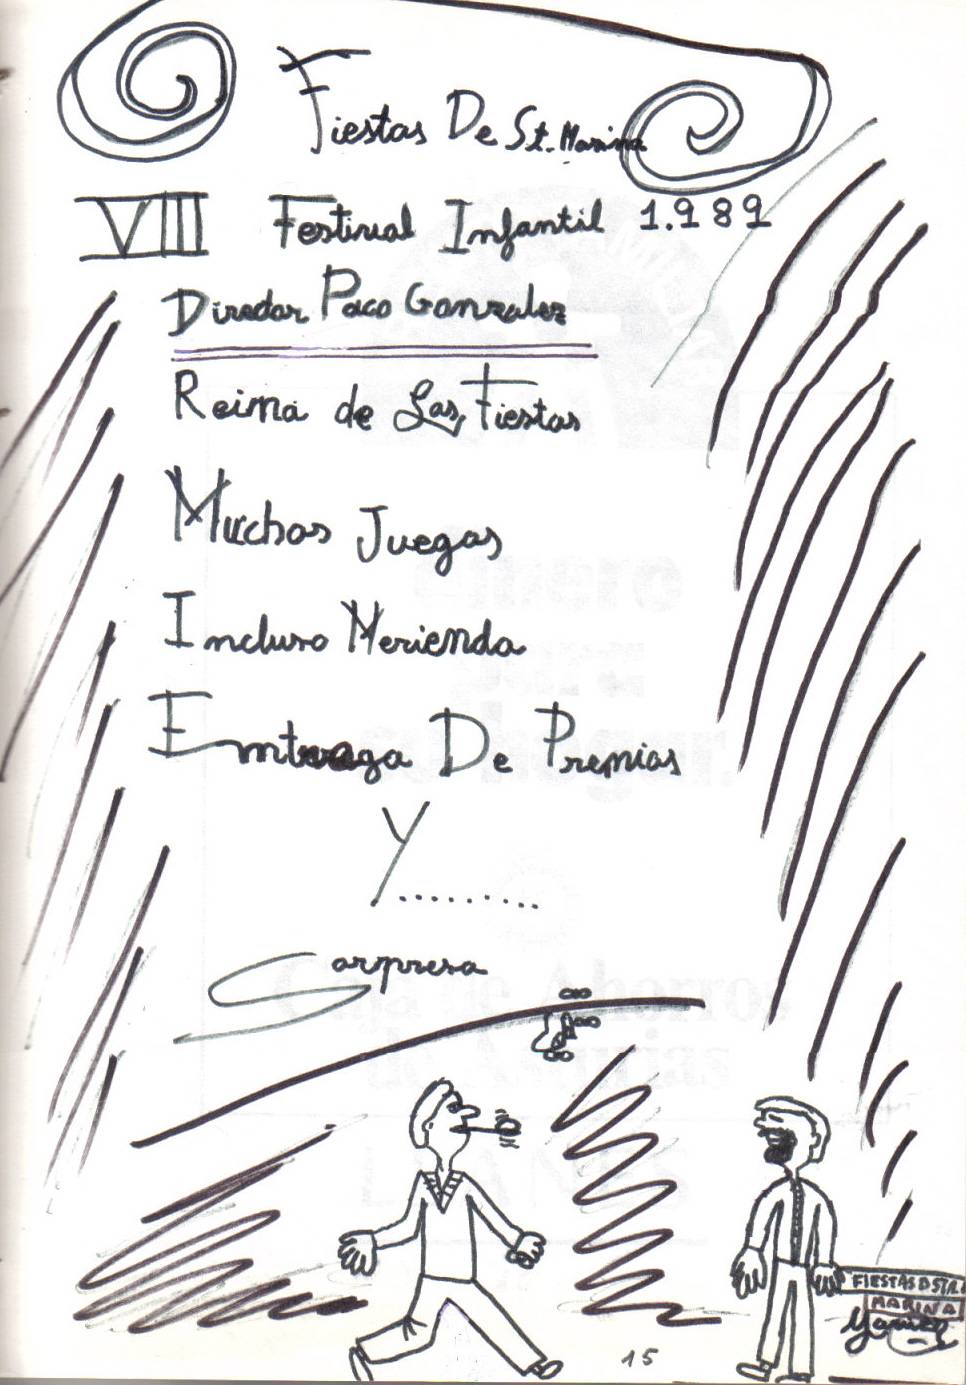 Fiestas De St. Marina
VIII Festival Infantil 1.989
Director Paco Gonzalez
Reina de Las Fiestas
Muchos Juegos
Incluso Merienda
Entrega De Premios
Y.........
Sorpresa
FIESTAS D STA
MARINA
15